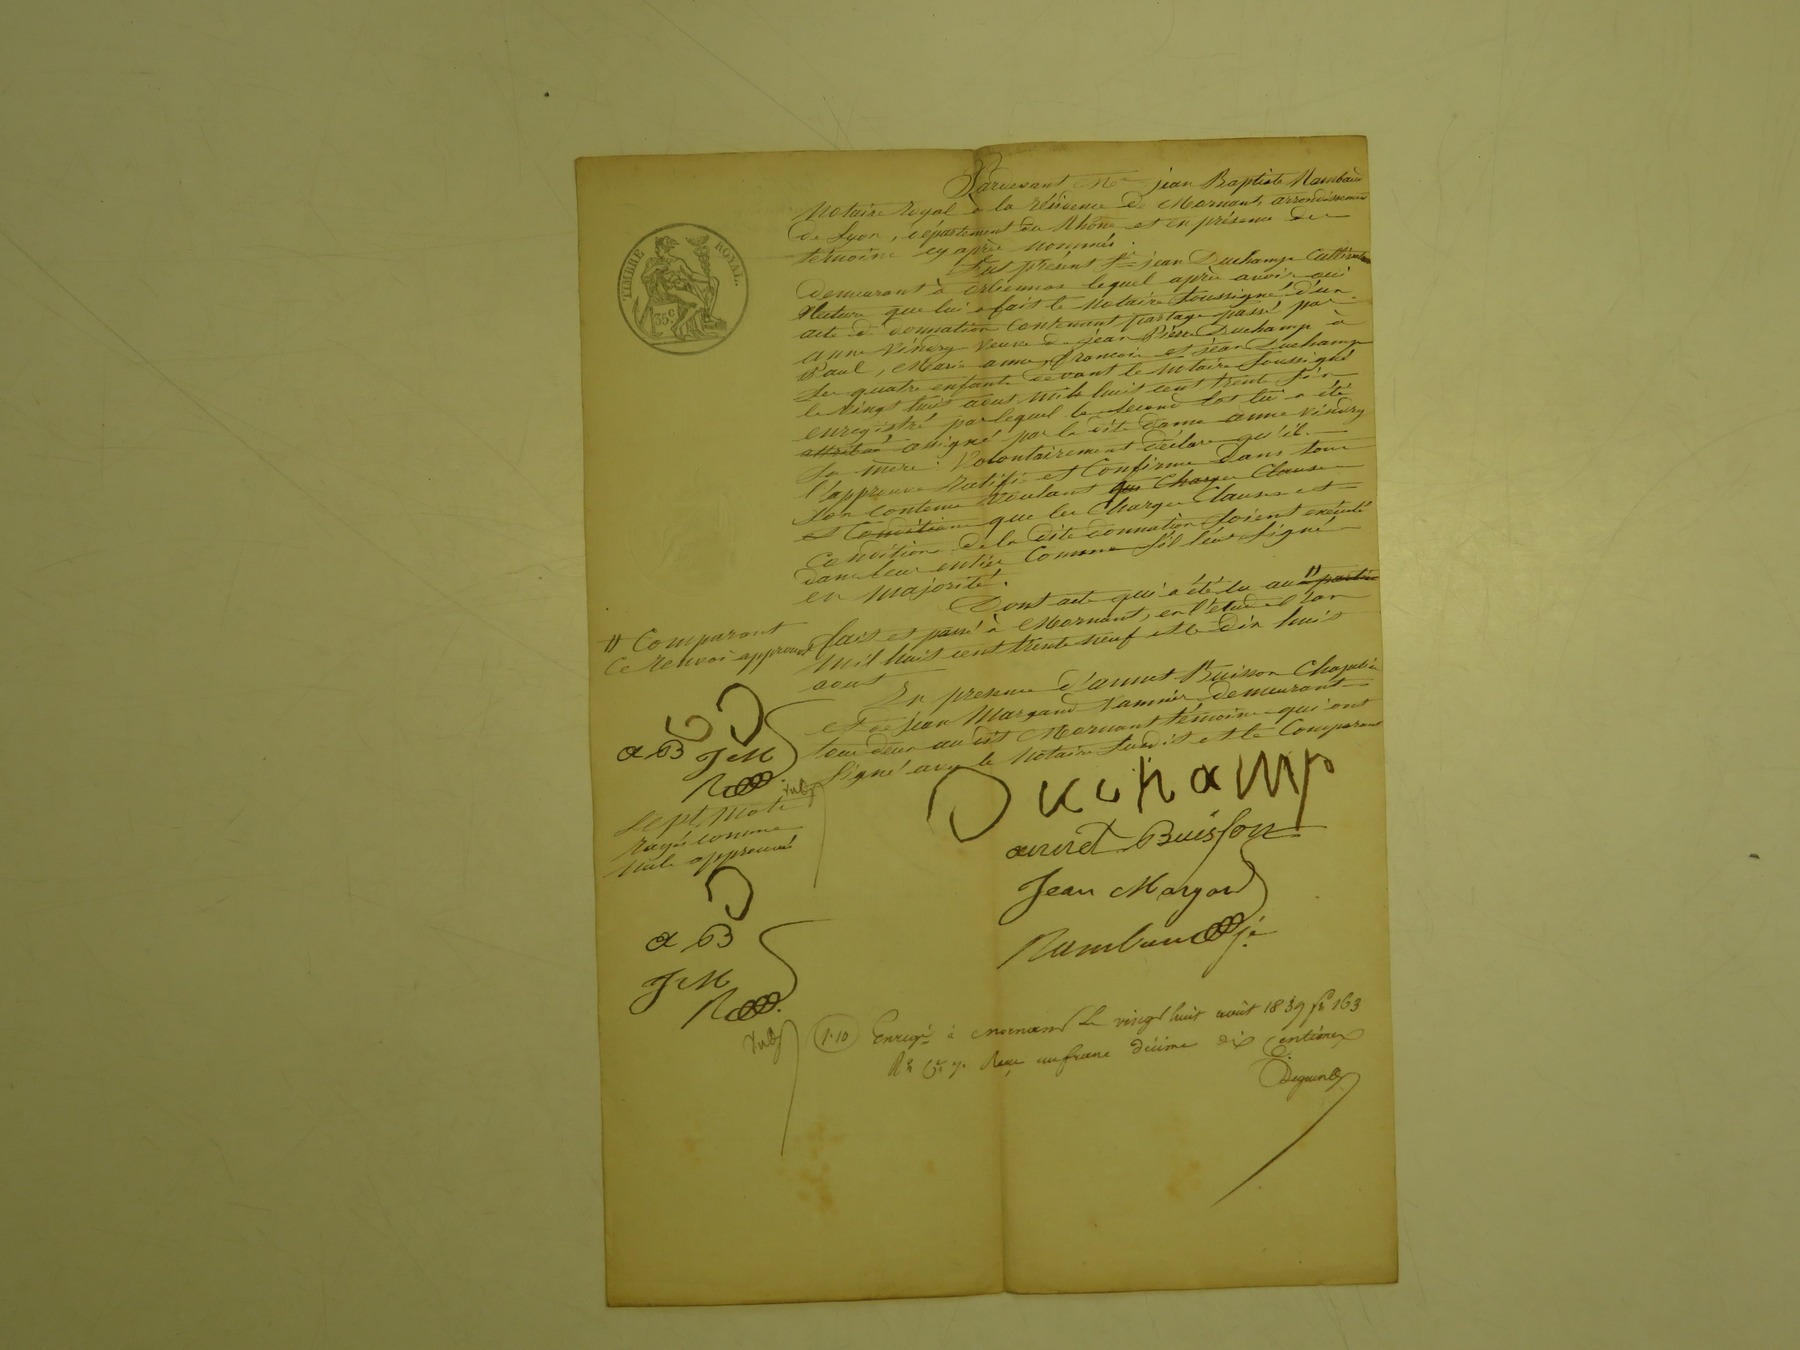 Pardevant Me jean Baptiste Rambaud
Notaire royal à la résidence de Mornant, arrondissement
de Lyon, département du Rhône et en présence des
témoins cy après nommés.
TIMBRE ROYAL.
35c
Fut présent Sr jean Duchamp Cultivateur
demeurant à orliennas lequel après avoir oui
lecture que lui a fait le Notaire soussigné d'un
acte de donnation contenant partage passé par
anne Vindry veuve de jean Pierre Duchamp à
Paul, Marie anne, francois et jean Duchamp
ses quatre enfants devant le Notaire soussigné
le vingt huit aout mil huit cent trente six
enregistré par lequel le second lot lui a été
attribué assigné par la dite dame anne Vindry
sa mère. Volontairement déclare qu'il
l'approuve Ratifie et Confirme dans tout
son contenu voulant que Charges Clauses
et Conditions que les Charges Clauses et
Conditions de la dite donnation soient exécuté
dans leur entier Comme s'il l'eut signé
en majorité.
Dont acte qui a été lu au // parties
fait et passé à Mornant, en l'étude l'an
mil huit cent trente neuf et le dix huit
aout
En presence d'annet Buisson Chapelier
et de jean Margand tannier demeurant
tous deux au dit Mornant témoins qui ont
signé avec le Notaire susdit et le Comparant
// Comparant
Ce renvoi approuvé
D
a B J M
R
Sept mots
rayés comme
nuls approuvés
D
a B
J M
R
Duchamp
annet Buisson
Jean Margand
Rambaud
1.10 Enregé à Mornant le vingt huit août 1839 fo 163
Ro Ce 7. Reçu un franc décime dix centimes